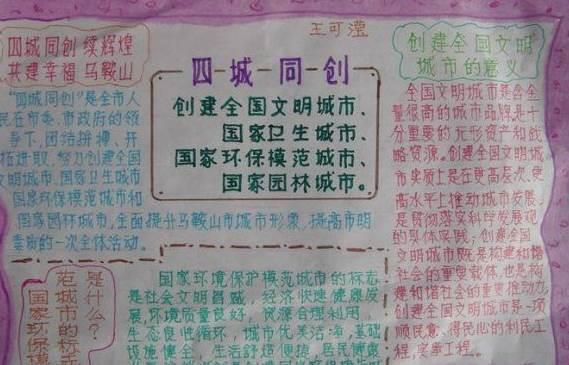 王可滢
四城同创 续辉煌
共建幸福马鞍山
"四城同创"是全市人
民在市委、市政府的领
导下,团结拼搏、开
拓进取,努力创建全国
文明城市、国家卫生城市
国家环保模范城市和
国家园林城市,全面提升马鞍山市城市形象,提高市明
素质的一次全体活动。
四城同创
创建全国文明城市、
国家卫生城市、
国家环保模范城市、
国家园林城市。
创建全国文明
城市的意义
全国文明城市是含金
量很高的城市品牌,是十
分重要的无形资产和战
略资源。创建全国文明城
市实质上是在更高层次、更
高水平上推动城市发展,
是贯彻落实科学发展观
的具体实践;创建全国
文明城市既是构建和谐
社会的重要载体,也是构
建和谐社会的重要推动力,
创建全国文明城市是一项
顺民意、得民心的利民工
程,实事工程。
是什么?
范城市的标志
国家环保模
国家环境保护模范城市的标志
是社会文明昌盛,经济快速健康发
展,环境质量良好,资源合理利用,
生态良性循环,城市优美洁净,基础
设施健全,生活舒适便捷,居民健康